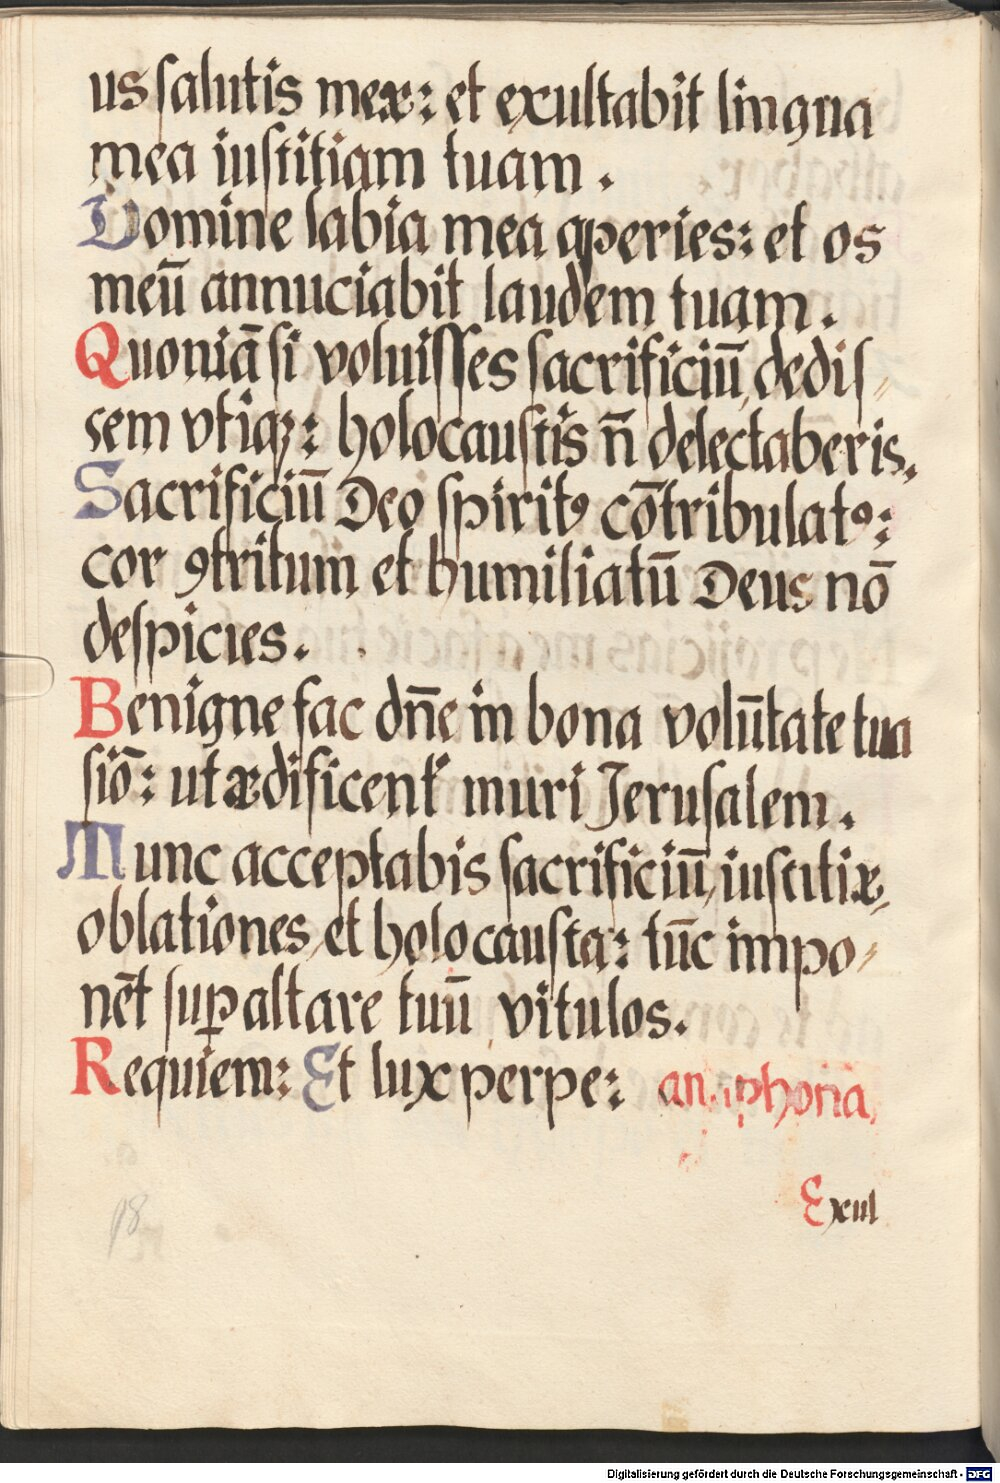 us salutis meæ: et exultabit lingua
mea iustitiam tuam.
Domine labia mea aperies: et os
meū annuciabit laudem tuam.
Quoniā si voluisses sacrificiū, dedis-
sem vtiqꝫ: holocaustis ñ delectaberis.
Sacrificiū Deo spiritꝰ cōtribulatꝰ:
cor ꝯtritum et humiliatū Deus nō
despicies.
Benigne fac dñe in bona volūtate tua
siō: ut ædificent muri Jerusalem.
Tunc acceptabis sacrificiū, iustitiæ,
oblationes, et holocausta: tūc impo-
nēt suꝑ altare tuū vitulos.
Requiem: Et lux perpe: antiphona,
Exul
98
Digitalisierung gefördert durch die Deutsche Forschungsgemeinschaft - DFG